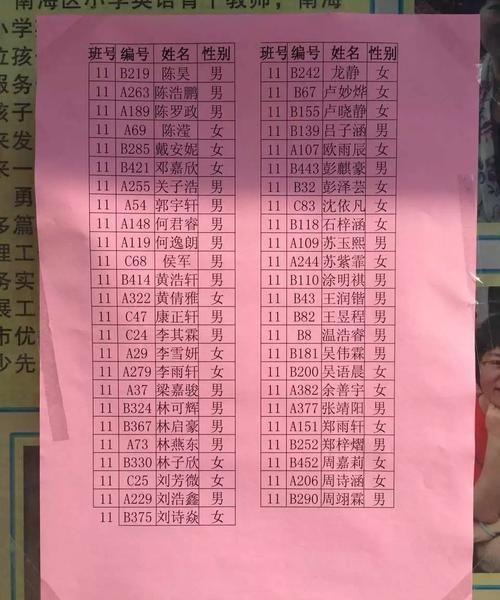 南海区小学英语骨干教师，南海
班号 编号 姓名 性别
11 B219 陈昊 男
11 A263 陈浩鹏 男
11 A189 陈罗政 男
11 A69 陈滢 女
11 B285 戴安妮 女
11 B421 邓嘉欣 女
11 A255 关子浩 男
11 A54 郭宇轩 男
11 A148 何君睿 男
11 A119 何逸朗 男
11 C68 侯军 男
11 B414 黄浩轩 男
11 A322 黄倩雅 女
11 C47 康正轩 男
11 C24 李其霖 男
11 A29 李雪妍 女
11 A279 李雨轩 女
11 A37 梁嘉骏 男
11 B324 林可辉 男
11 B367 林启豪 男
11 A73 林燕东 男
11 B330 林子欣 女
11 C25 刘芳微 女
11 A229 刘浩鑫 男
11 B375 刘诗焱 女
班号 编号 姓名 性别
11 B242 龙静 女
11 B67 卢妙烨 女
11 B155 卢晓静 女
11 B139 吕子涵 男
11 A107 欧雨辰 女
11 B443 彭麒豪 男
11 B32 彭泽芸 女
11 C83 沈依凡 女
11 B118 石梓涵 女
11 A109 苏玉熙 男
11 A244 苏紫霏 女
11 B110 涂明祺 男
11 B43 王润锴 男
11 B82 王昱程 男
11 B8 温浩睿 男
11 B181 吴伟霖 男
11 B200 吴语晨 女
11 A382 余善宇 女
11 A377 张靖阳 男
11 A151 郑雨轩 女
11 B252 郑梓熠 男
11 B452 周嘉莉 女
11 A206 周诗涵 女
11 B290 周翊霖 男